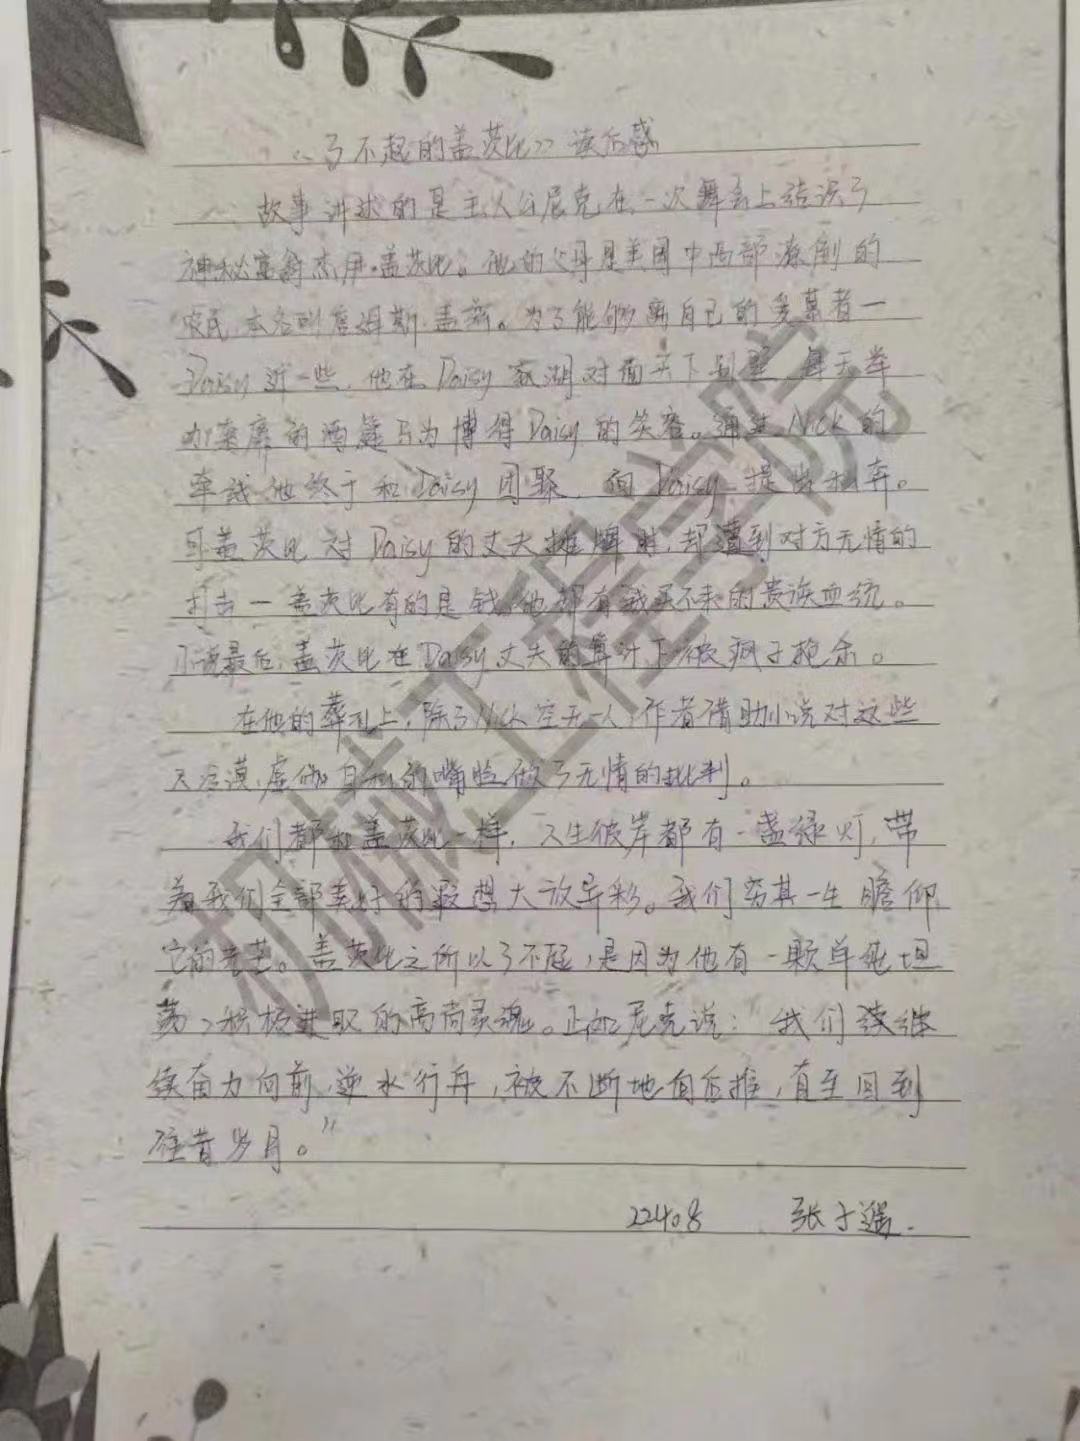 《了不起的盖茨比》读后感
故事讲述的是主人公尼克在一次舞会上结识了
神秘富翁杰伊·盖茨比。他的父母是美国中西部潦倒的
农民,本名叫詹姆斯·盖兹。为了能够离自己的爱慕者一
Daisy近一些,他在Daisy家湖对面买下别墅,每天举
办豪席的酒筵只为博得Daisy的笑容。通过Nick的
牵线他终于和Daisy团聚,向Daisy提出私奔。
可盖茨比对Daisy的丈夫摊牌时,却遭到对方无情的
打击一盖茨比有的是钱,他却有我买不来的贵族血统。
小说最后,盖茨比在Daisy丈夫的算计下被疯子枪杀。
在他的葬礼上,除了Nick空无一人,作者借助小说对这些
人冷漠、虚伪、自私的嘴脸做了无情的批判。
我们都和盖茨比一样,人生彼岸都有一盏绿灯,带
着我们全部美好的遐想大放异彩。我们穷其一生瞻仰
它的光芒。盖茨比之所以了不起,是因为他有一颗单纯坦
荡、积极进取的高尚灵魂。正如尼克说:"我们续继
续奋力向前,逆水行舟,被不断地向后推,直至回到
往昔岁月。"
22408 张子遥.
机械工程学院